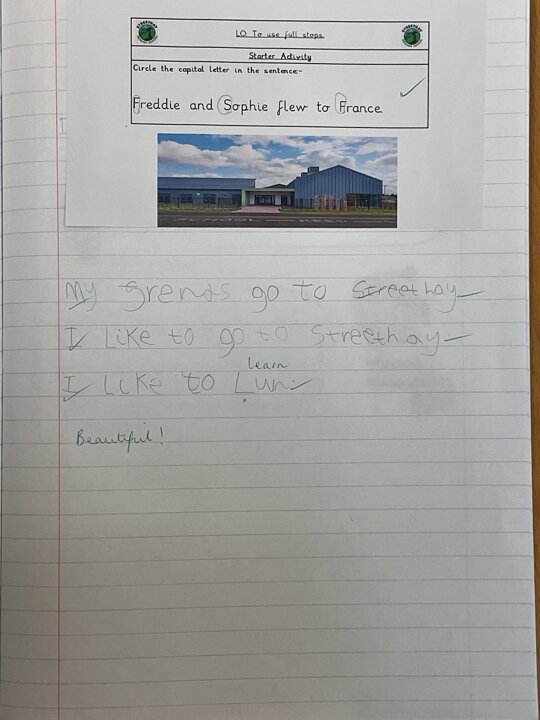 LO: To use full stops.
Starter Activity
Circle the capital letter in the sentence:-
Freddie and Sophie flew to France.
My frends go to Streethay
I Like to go to Streethay
learn
I Like to Lun.
Beautiful!